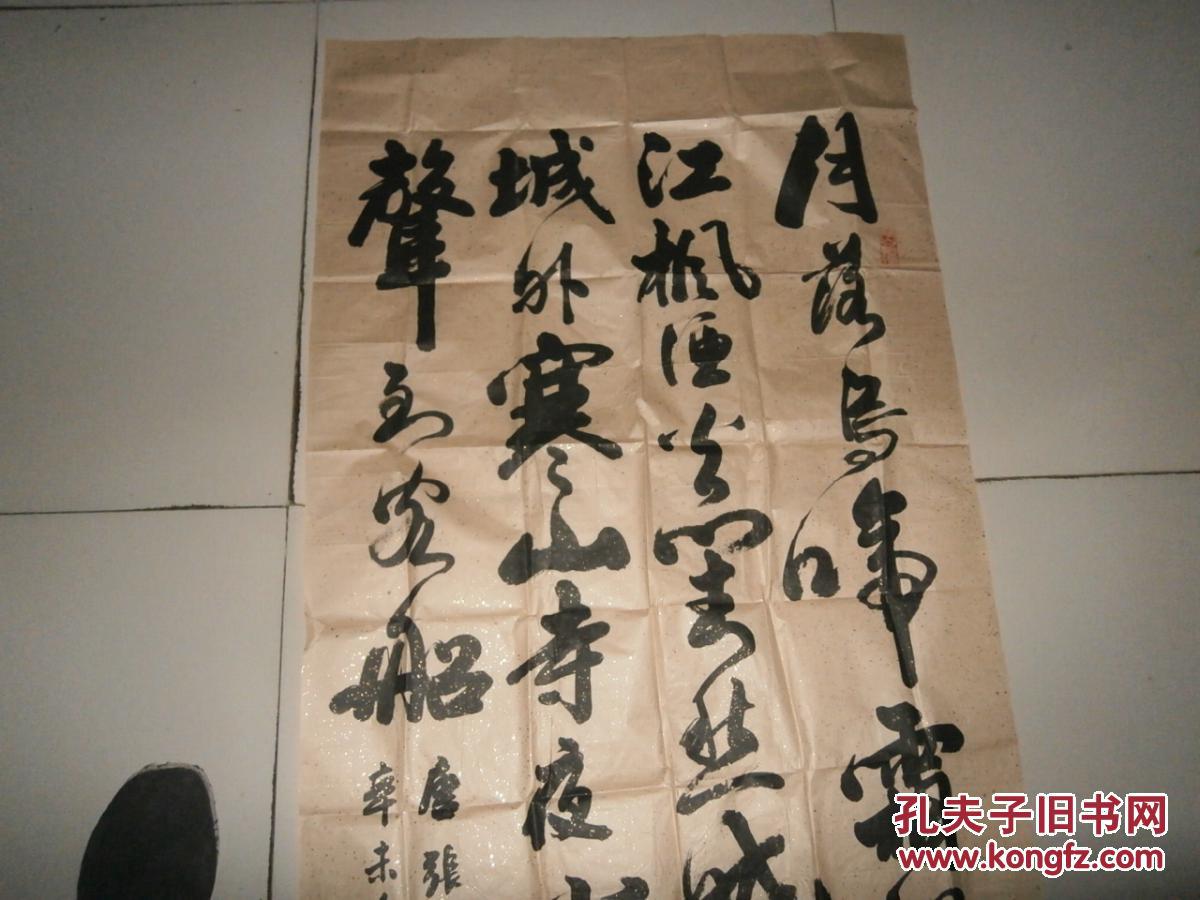 月落烏啼霜
江楓漁火對愁
城外寒山寺夜
聲到客船
唐張
辛未
孔夫子旧书网
www.kongfz.com